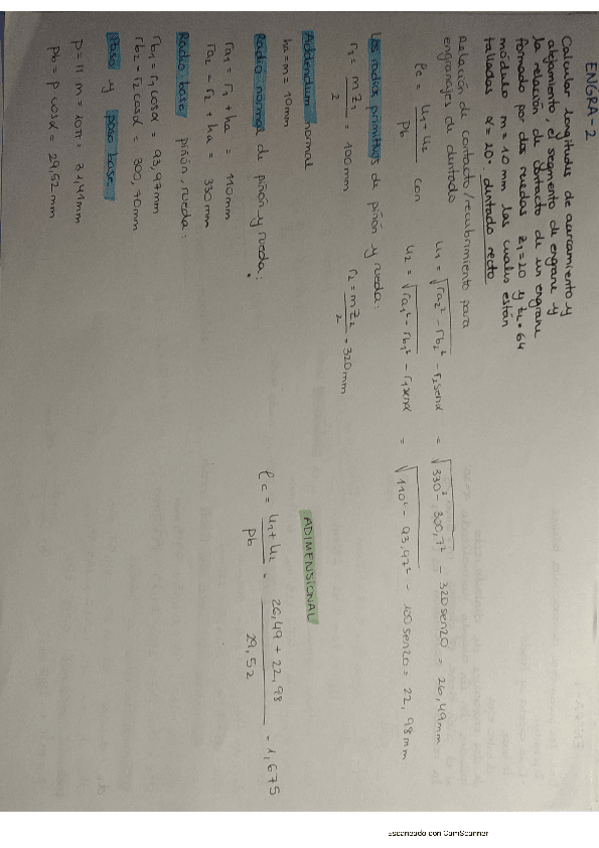 ENGRA-2
Calcular longitudes de acercamiento y
alejamiento, el segmento de engrane y
la relación de contacto de un engrane
formado por dos ruedas z₁=20 y z₂=64
módulo m=10 mm las cuales están
talladas α=20º. dentado recto
Relación de contacto/recubrimiento para
engranajes de dentado
ρc = (u₁+u₂)/Pb con
u₁ = √(ra₂² - rb₂²) - r₂senα = √(330² - 300,7²) - 320sen20 = 26,49mm
u₂ = √(ra₁² - rb₁²) - r₁senα = √(110² - 93,97²) - 100sen20 = 22,98mm
Los radios primitivos de piñón y rueda:
r₁ = mz₁/2 = 100mm r₂ = mz₂/2 = 320mm
Addendum normal
ha=m=10mm
Radio normal de piñón y rueda:
ra₁ = r₁ + ha = 110mm
ra₂ = r₂ + ha = 330mm
Radio base piñón, rueda:
rb₁ = r₁cosα = 93,97mm
rb₂ = r₂cosα = 300,70mm
Paso y paso base:
p = π m = 10π = 31,41mm
pb = p cosα = 29,52mm
ADIMENSIONAL
ρc = (u₁+u₂)/Pb = (26,49 + 22,98)/29,52 = 1,675
Escaneado con CamScanner